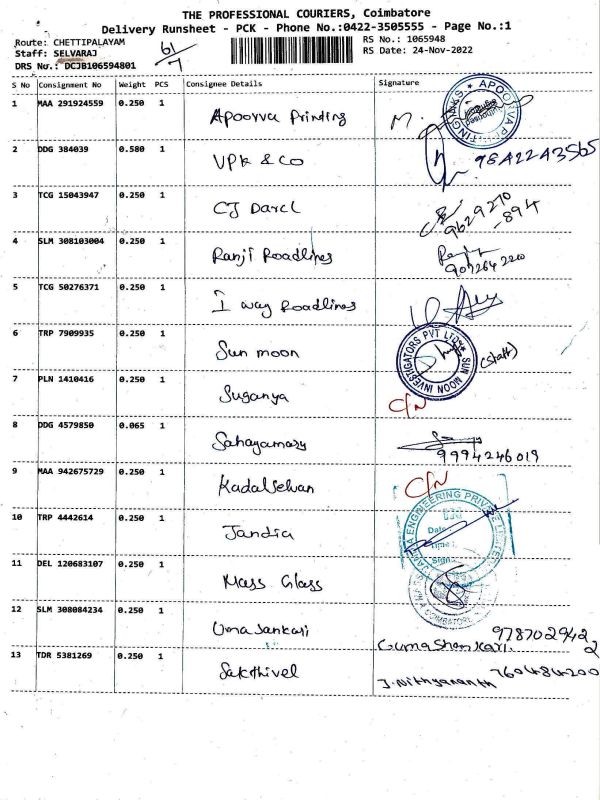 THE PROFESSIONAL COURIERS, Coimbatore
Delivery Runsheet - PCK - Phone No.:0422-3505555 - Page No.:1
Route: CHETTIPALAYAM 61/7 RS No.: 1065948
Staff: SELVARAJ RS Date: 24-Nov-2022
DRS No.: DCJB106594801
S No Consignment No Weight PCS Consignee Details Signature
1 MAA 291924559 0.250 1 Apoorva Printing M.
2 DDG 384039 0.580 1 VPK & Co
3 TCG 15043947 0.250 1 CJ Darcl 9629270
-894
4 SLM 308103004 0.250 1 Ranji Roadlines
5 TCG 50276371 0.250 1 I way Roadlines
6 TRP 7909935 0.250 1 Sun moon SUN MOON INVESTIGATORS PVT LTD (Staff)
7 PLN 1410416 0.250 1 Suganya C/N
8 DDG 4579850 0.065 1 Sahayamary 9994246019
9 MAA 942675729 0.250 1 Kadalselvan C/N
10 TRP 4442614 0.250 1 Jandia ENGINEERING PRIVATE
Date:
Time:
Sign:
11 DEL 120683107 0.250 1 Mass Glass COIMBATORE
12 SLM 308084234 0.250 1 Uma Sankari 9787029422
13 TDR 5381269 0.250 1 Sakthivel J. Nithyananth 760484200